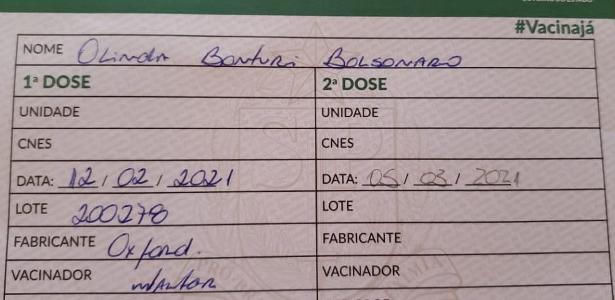 #Vacinajá
NOME Olinda Bonturi Bolsonaro
1ª DOSE 2ª DOSE
UNIDADE UNIDADE
CNES CNES
DATA: 12 / 02 / 2021 DATA: 05 / 03 / 2021
LOTE 200278 LOTE
FABRICANTE Oxford. FABRICANTE
VACINADOR VACINADOR